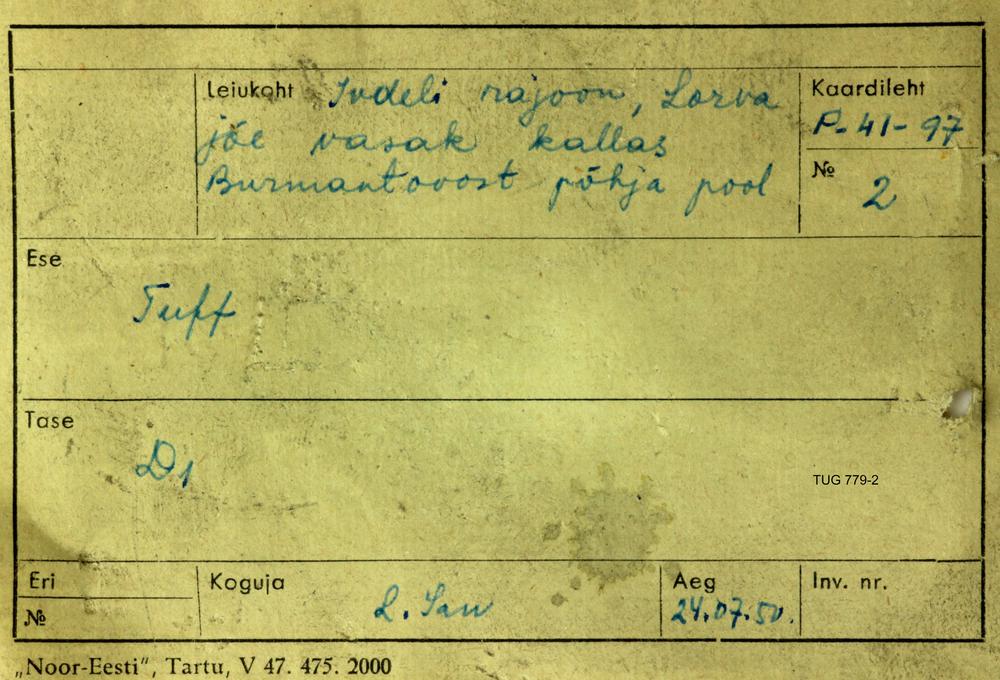 Leiukoht Ivdeli rajoon, Lozva
jõe vasak kallas
Burmantovost põhja pool
Kaardileht
P-41-97
№ 2
Ese
Tuff
Tase
D1
TUG 779-2
Eri
№
Koguja
Aeg
24.07.50.
Inv. nr.
„Noor-Eesti“, Tartu, V 47. 475. 2000